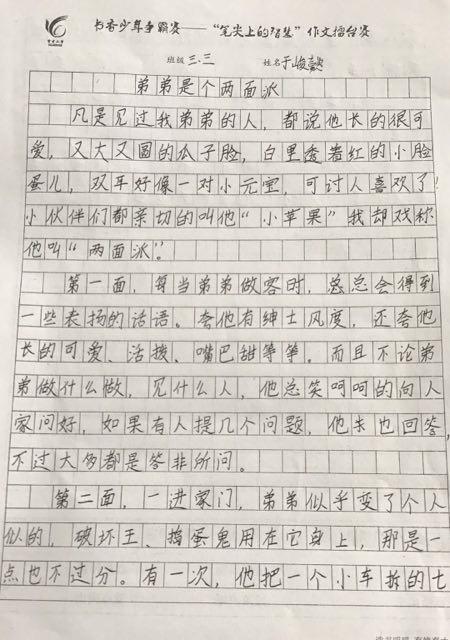 书香少年争霸赛——“笔尖上的智慧”作文擂台赛
班级 三.三 姓名 于峻懿
弟弟是个两面派
凡是见过我弟弟的人，都说他长的很可
爱，又大又圆的瓜子脸，白里透着红的小脸
蛋儿，双耳好像一对小元宝，可讨人喜欢了！
小伙伴们都亲切的叫他“小苹果”我却戏称
他叫“两面派”。
第一面，每当弟弟做客时，总总会得到
一些表扬的话语。夸他有绅士风度，还夸他
长的可爱、活拨、嘴巴甜等等。而且不论弟
弟做什么做，见什么人，他总笑呵呵的向人
家问好，如果有人提几个问题，他也回答，
不过大多都是答非所问。
第二面，一进家门，弟弟似乎变了个人
似的，破坏王、捣蛋鬼用在它身上，那是一
点也不过分。有一次，他把一个小车拆的七